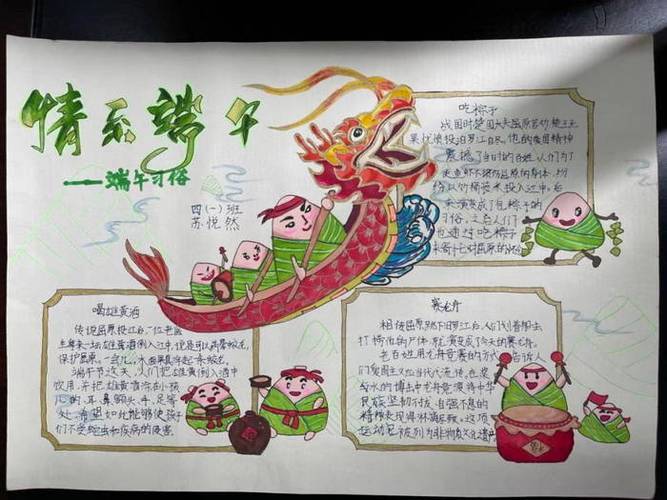 情系端午
——端午习俗
四(一)班
苏悦然
吃粽子
战国时楚国大夫屈原苦劝楚王无
果忧愤投汨罗江自尽。他的爱国精神
震撼了当时的百姓,人们为了
不让鱼虾不损伤屈原的身体,纷
纷以竹桶装米投入江中。后
来演变成了包粽子的
习俗。之后人们
也通过吃粽子
来寄托对屈原的
喝雄黄酒
传说屈原投江后,一位老医
生拿来一坛雄黄酒倒入江中,说是可以药晕蛟龙,
保护屈原。一会儿,水面果真浮起一条蛟龙。
端午节这天,人们把雄黄倒入酒中
饮用,并把雄黄酒涂在小孩
儿的耳、鼻、额头、手、足等
处,希望如此能够使孩子
们不受蛇虫和疾病的侵害。
赛龙舟
相传屈原跳下汨罗江后,人们划着船去
打捞他的尸体,就演变成了今天的赛龙舟。
老百姓用龙舟竞赛的方式,告诉人
们爱国主义应当代代流传,也浆
与水的博击中龙舟竞演绎中华
民族坚韧不拔、自强不息的
精神表现得淋漓尽致。这项
运动已被列为非物质文化遗产